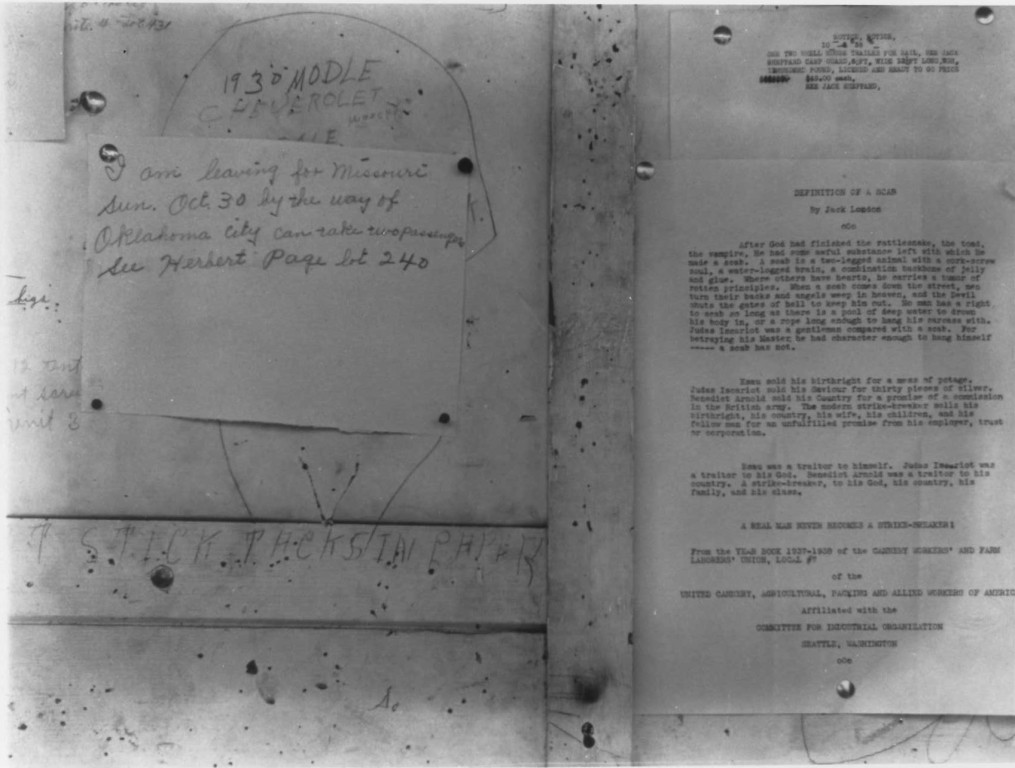 1930 MODLE
CHEVEROLET
I am leaving for Missouri
Sun. Oct. 30 by the way of
Oklahoma City can take two passengers
See Herbert Page lot 240
T STICK TACKS IN PAPAR
NOTICE, NOTICE,
SEE JACK SHEPPARD,
DEFINITION OF A SCAB
By Jack London
oOo
After God had finished the rattlesnake, the toad,
the vampire, He had some awful substance left with which he
made a scab. A scab is a two-legged animal with a cork-screw
soul, a water-logged brain, a combination backbone of jelly
and glue. Where others have hearts, he carries a tumor of
rotten principles. When a scab comes down the street, men
turn their backs and angels weep in heaven, and the Devil
shuts the gates of hell to keep him out. No man has a right
to scab so long as there is a pool of deep water to drown
his body in, or a rope long enough to hang his carcass with.
Judas Iscariot was a gentleman compared with a scab. For
betraying his Master he had character enough to hang himself
----- a scab has not.
Esau sold his birthright for a mess of potage.
Judas Iscariot sold his Saviour for thirty pieces of silver.
Benedict Arnold sold his Country for a promise of a commission
in the British army. The modern strike-breaker sells his
birthright, his country, his wife, his children, and his
fellow men for an unfulfilled promise from his employer, trust
or corporation.
Esau was a traitor to himself. Judas Iscariot was
a traitor to his God. Benedict Arnold was a traitor to his
country. A strike-breaker, to his God, his country, his
family, and his class.
A REAL MAN NEVER BECOMES A STRIKE-BREAKER!
From the YEAR BOOK 1937-1938 of the CANNERY WORKERS' AND FARM
LABORERS' UNION, LOCAL #7
of the
UNITED CANNERY, AGRICULTURAL, PACKING AND ALLIED WORKERS OF AMERIC
Affiliated with the
COMMITTEE FOR INDUSTRIAL ORGANIZATION
SEATTLE, WASHINGTON
oOo